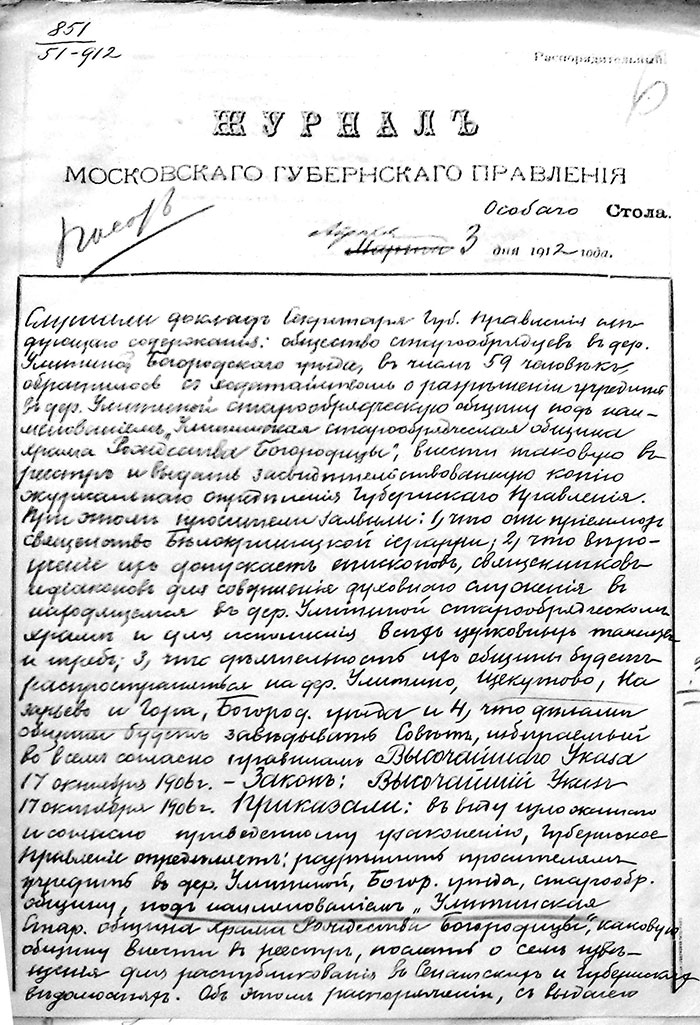 851
51-912
Распорядительный
ЖУРНАЛЪ
МОСКОВСКАГО ГУБЕРНСКАГО ПРАВЛЕНІЯ
Особаго Стола.
Марта 3 дня 1912 года.
Слушали докладъ Секретаря Губ. Правленія слѣ-
дующаго содержанія: общество старообрядцевъ въ дер.
Улитиной Богородскаго уѣзда, въ числѣ 59 человѣкъ,
обратилось съ ходатайствомъ о разрѣшеніи учредить
въ дер. Улитиной старообрядческую общину подъ наи-
менованіемъ „Улитинская старообрядческая община
храма Рождества Богородицы", внести таковую въ
реестръ и выдать засвидѣтельствованную копію
журнальнаго опредѣленія Губернскаго Правленія.
При этомъ просители заявили: 1, что они пріемлютъ
священство Бѣлокриницкой іерархіи; 2, что вѣро-
ученіе ихъ допускаетъ епископовъ, священниковъ
и діаконовъ для совершенія духовнаго служенія въ
находящемся въ дер. Улитиной старообрядческомъ
храмѣ и для исполненія всѣхъ церковныхъ таинствъ
и требъ; 3, что дѣятельность ихъ общины будетъ
распространяться на дер. Улитино, Щекутово, На
зарьево и Гора, Богород. уѣзда и 4, что дѣлами
общины будетъ завѣдывать Совѣтъ, избираемый
во всемъ согласно правиламъ Высочайшаго Указа
17 октября 1906 г. – Законъ: Высочайшій Указъ
17 октября 1906 г. Приказали: въ виду изложеннаго
и согласно приведенному узаконенію, Губернское
Правленіе опредѣляетъ: разрѣшить просителямъ
учредить въ дер. Улитиной, Богор. уѣзда, старообр.
общину, подъ наименованіемъ „Улитинская
Стар. община храма Рождества Богородицы", каковую
общину внести въ реестръ, послать о семъ извѣ-
щенія для распубликованія въ Сенатскихъ и Губернскихъ
вѣдомостяхъ. Объ этомъ распоряженіи, съ выдачею